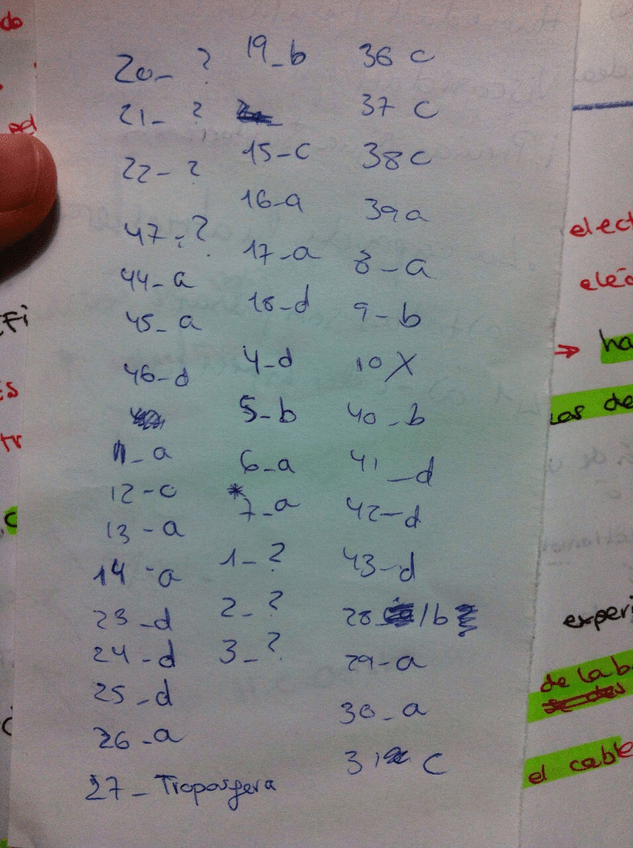 20- ?
21- ?
22- ?
47- ?
44- a
45- a
46- d
11- a
12- c
13- a
14- a
23- d
24- d
25- d
26- a
27- Troposfera
19- b
15- c
16- a
17- a
18- d
4- d
5- b
6- a
*7- a
1- ?
2- ?
3- ?
36 c
37 c
38 c
39 a
8- a
9- b
10 X
40- b
41- d
42- d
43- d
28- /b
29- a
30- a
31 c
do
elect
→ ha
experi
de la b
el cable